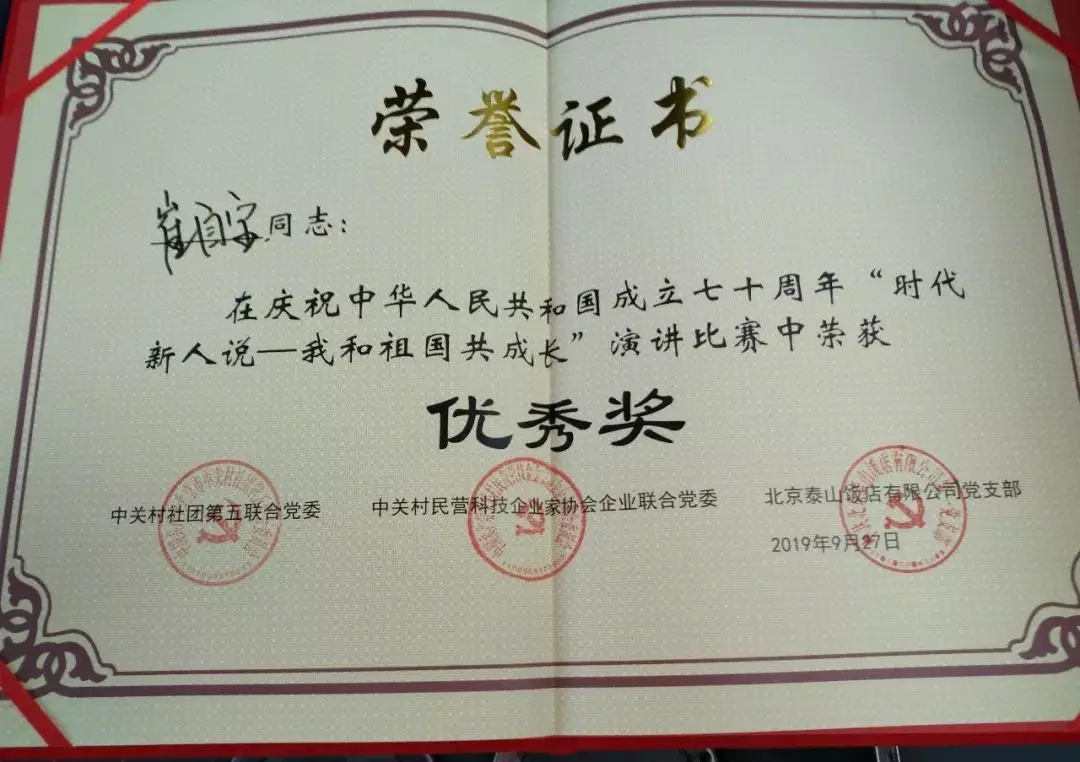 荣誉证书
崔自字同志：
在庆祝中华人民共和国成立七十周年“时代
新人说—我和祖国共成长”演讲比赛中荣获
优秀奖
中关村社团第五联合党委 中关村民营科技企业家协会企业联合党委 北京泰山饭店有限公司党支部
2019年9月27日